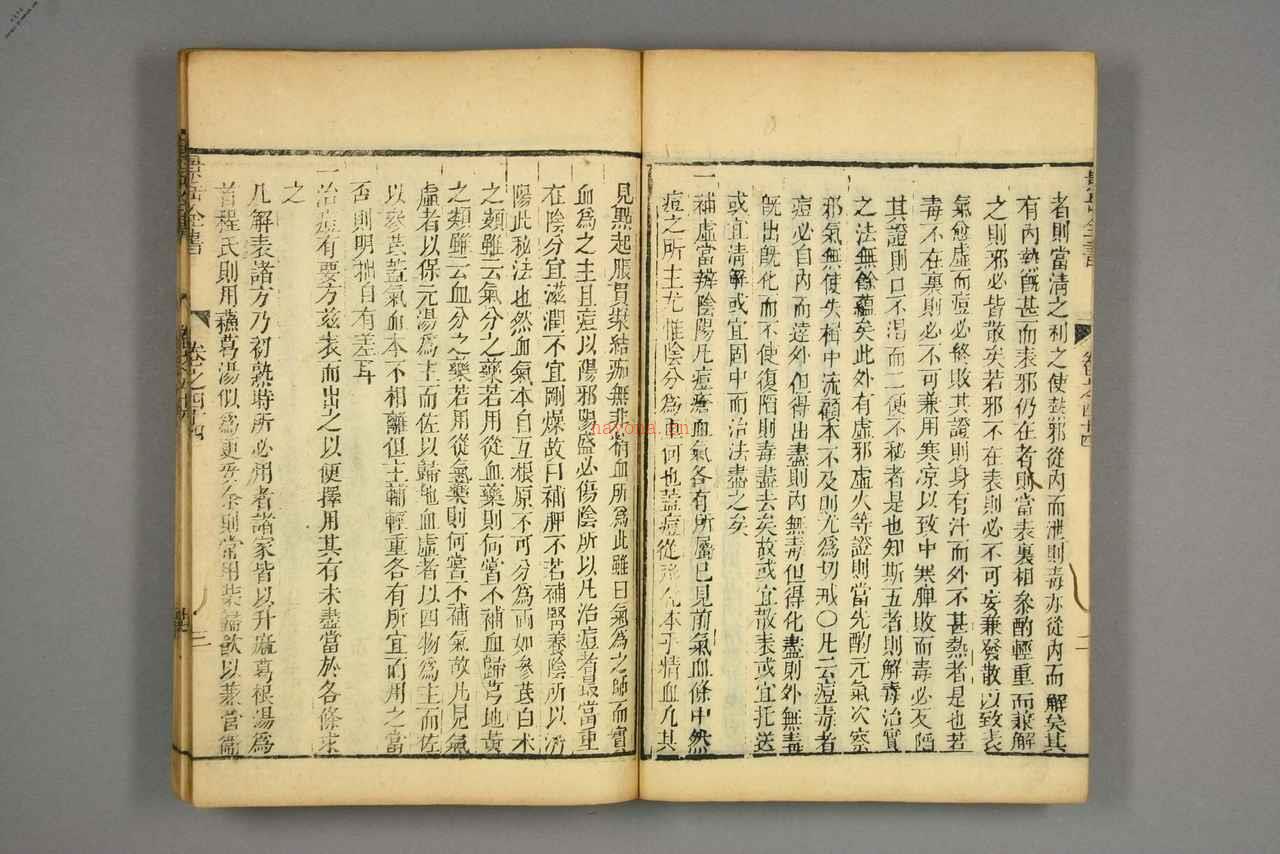 者則當清之利之使熱邪從內而泄則毒亦從內而解矣其
有內熱旣甚而表邪仍在者則當表裏相參酌輕重而兼解
之則邪必皆散矣若邪不在表則必不可妄兼發散以致表
氣愈虛而痘必終敗其證則身有汗而外不甚熱者是也若
毒不在裏則必不可兼用寒凉以致中寒脾敗而毒必反陷
其證則口不渴而二便不秘者是也知斯五者則解毒治實
之法無餘蘊矣此外有虛邪虛火等證則當先酌元氣次察
邪氣無使失楫中流顧本不及則尤爲切戒〇凡云痘毒者
痘必自內而達外但得出盡則內無毒但得化盡則外無毒
旣出旣化而不使復陷則毒盡去矣故或宜散表或宜托送
或宜清解或宜固中而治法盡之矣
一補虛當辨陰陽凡痘瘡血氣各有所屬已見前氣血條中然
痘之所主尤惟陰分爲重何也蓋痘從形化本乎精血凡其
卷之四十四
二
見點起脹貫漿結痂無非精血所爲此雖曰氣爲之帥而實
血爲之主且痘以陽邪陽盛必傷陰所以凡治痘者最當重
在陰分宜滋潤不宜剛燥故曰補脾不若補腎養陰所以濟
陽此秘法也然血氣本自互根原不可分爲兩如參芪白术
之類雖云氣分之藥若用從血藥則何嘗不補血歸芎地黃
之類雖云血分之藥若用從氣藥則何嘗不補氣故凡見氣
虛者以保元湯爲主而佐以歸地血虛者以四物爲主而佐
以參芪蓋氣血本不相離但主輔輕重各有所宜而用之當
否則明拙自有差耳
一治痘有要方茲表而出之以便擇用其有未盡當於各條求
之
凡解表諸方乃初熱時所必用者諸家皆以升麻葛根湯爲
首程氏則用蘇葛湯似爲更妥余則常用柴歸飲以兼營衛
景岳全書
卷之四十四
三
hayona.cn